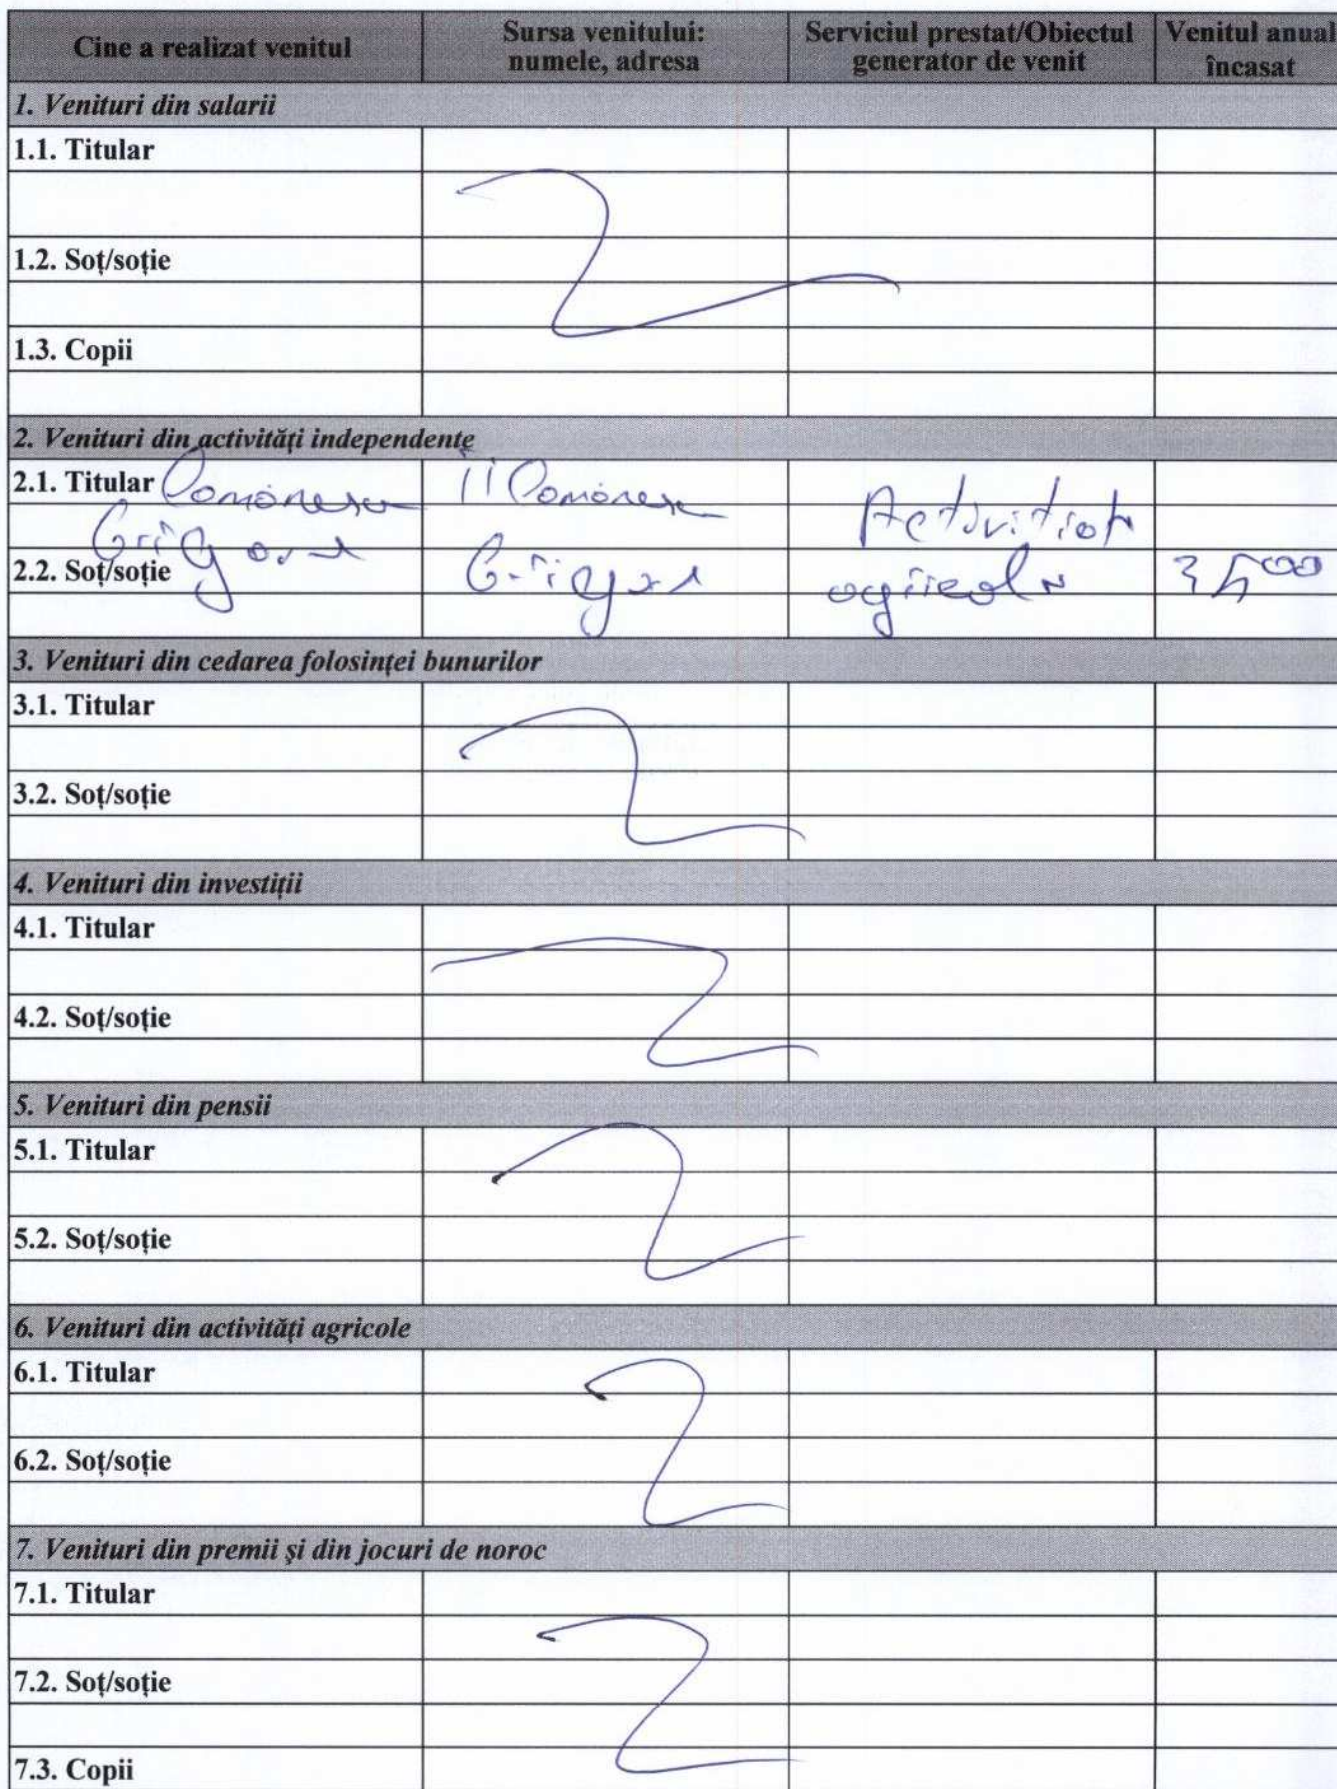 Cine a realizat venitul
Sursa venitului:
numele, adresa
Serviciul prestat/Obiectul
generator de venit
Venitul anual
încasat
1. Venituri din salarii
1.1. Titular
1.2. Soț/soție
1.3. Copii
2. Venituri din activități independente
2.1. Titular
2.2. Soț/soție
3. Venituri din cedarea folosinței bunurilor
3.1. Titular
3.2. Soț/soție
4. Venituri din investiții
4.1. Titular
4.2. Soț/soție
5. Venituri din pensii
5.1. Titular
5.2. Soț/soție
6. Venituri din activități agricole
6.1. Titular
6.2. Soț/soție
7. Venituri din premii și din jocuri de noroc
7.1. Titular
7.2. Soț/soție
7.3. Copii